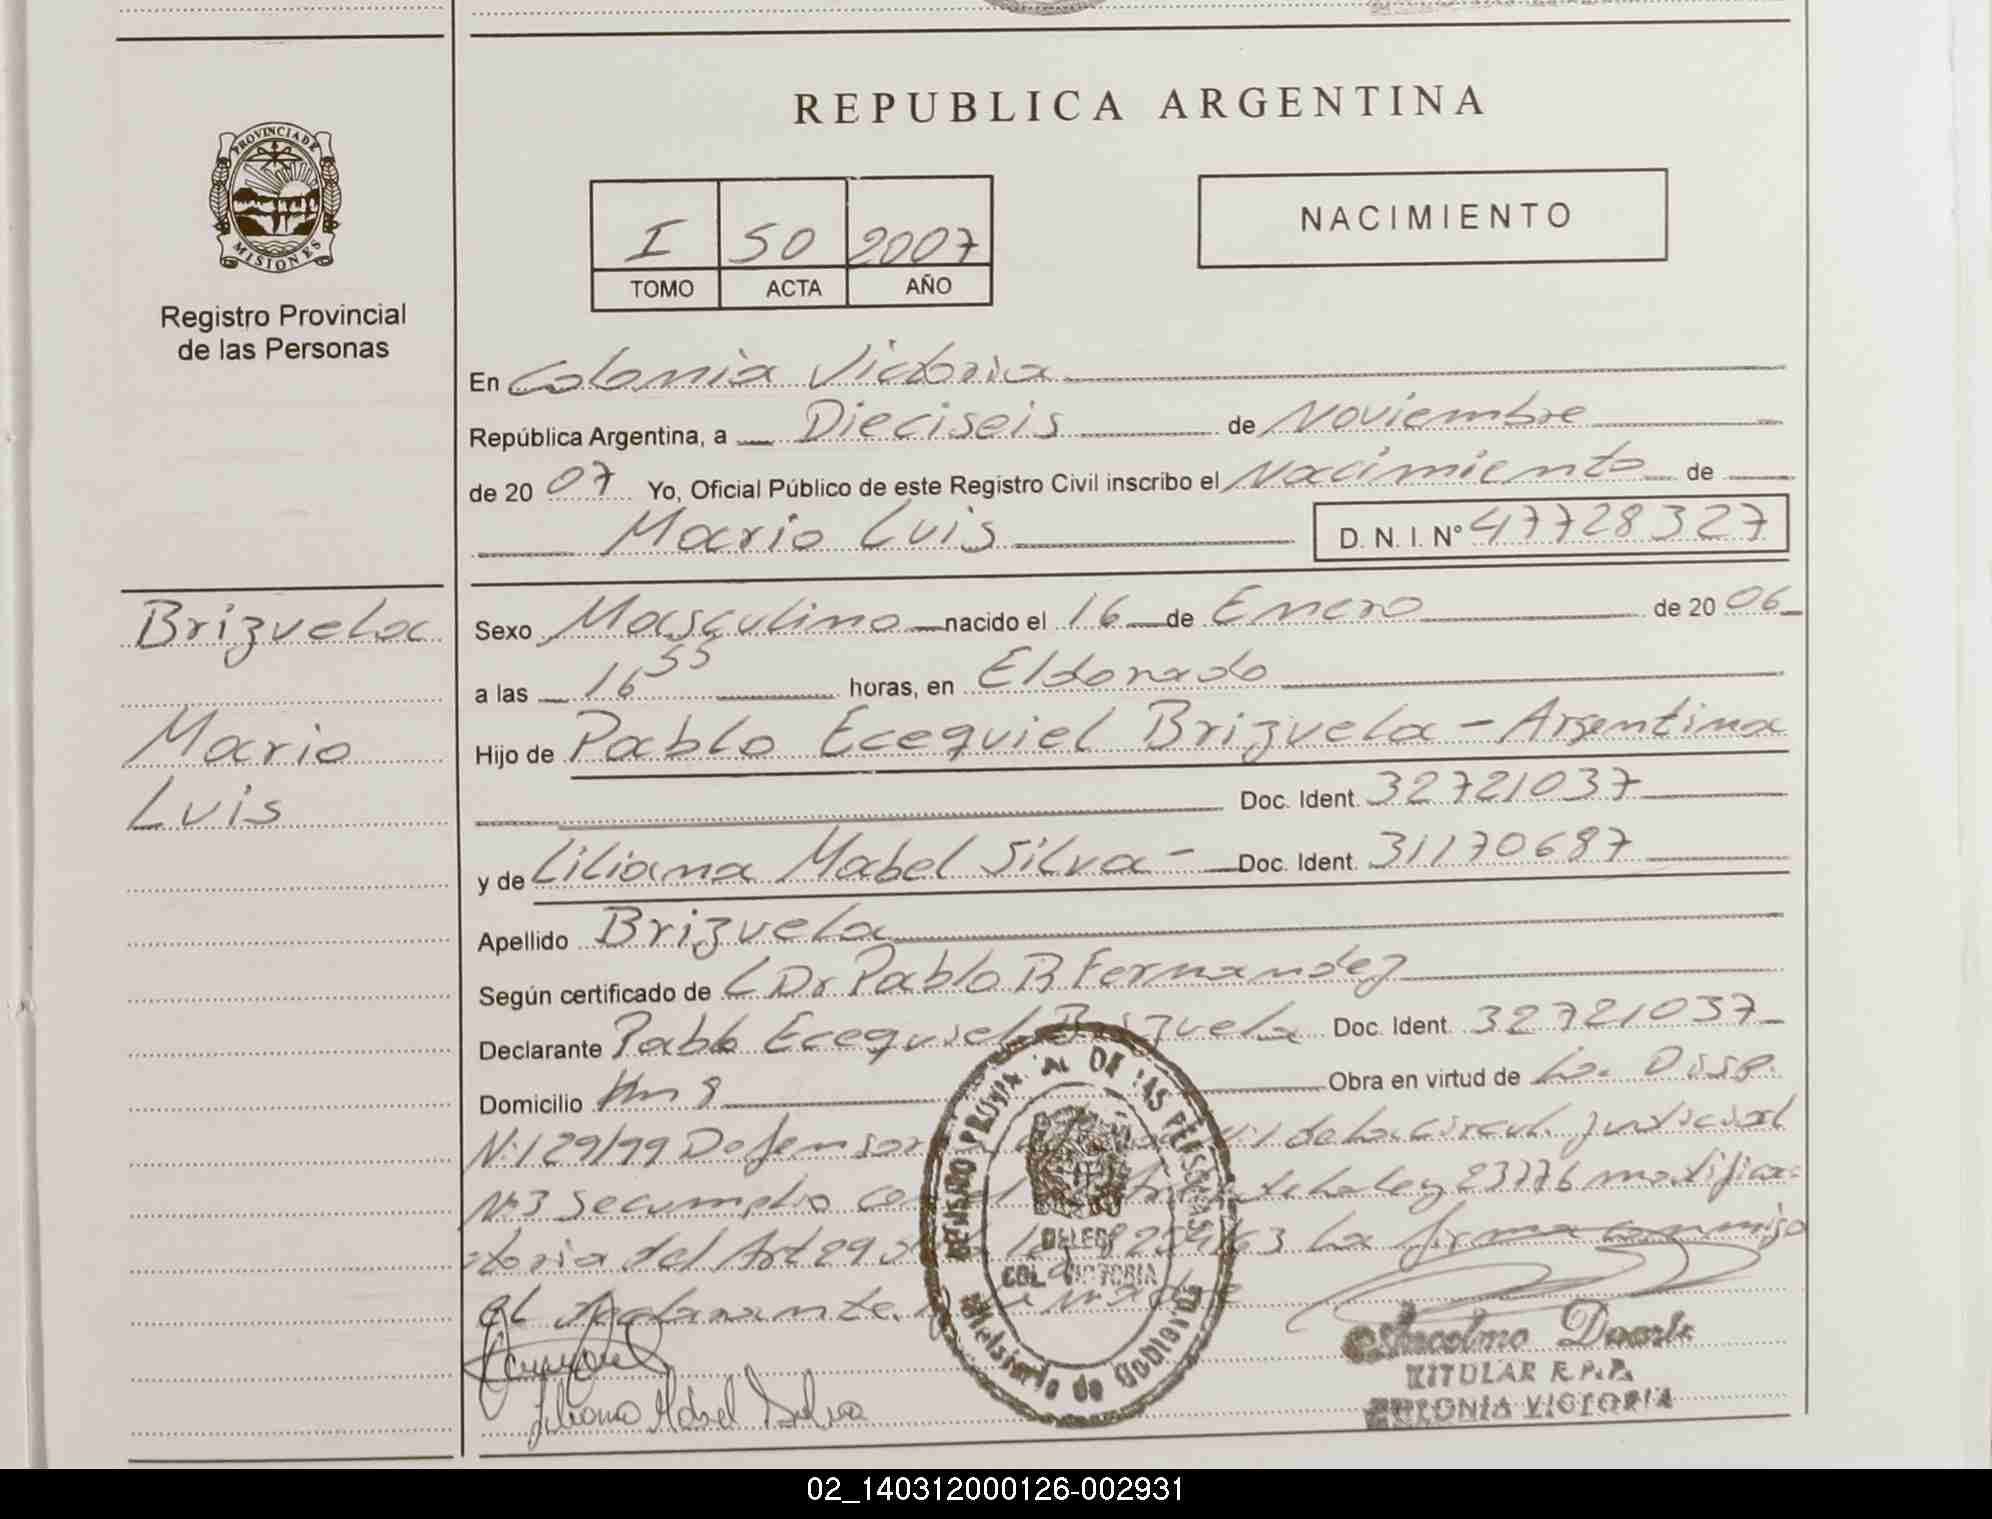 REPUBLICA ARGENTINA
PROVINCIA DE
MISIONES
Registro Provincial
de las Personas
I 50 2007
TOMO ACTA AÑO
NACIMIENTO
En Colonia Victoria
República Argentina, a Dieciseis de Noviembre
de 20 07 Yo, Oficial Público de este Registro Civil inscribo el Nacimiento de
Mario Luis D. N. I. N° 47728327
Brizuela
Mario
Luis
Sexo Masculino nacido el 16 de Enero de 20 06
a las 16 55 horas, en Eldorado
Hijo de Pablo Ecequiel Brizuela - Argentina
Doc. Ident. 32721037
y de Liliana Mabel Silva - Doc. Ident. 31170687
Apellido Brizuela
Según certificado de L Dr Pablo R Fernandez
Declarante Pablo Ecequiel Brizuela Doc. Ident. 32721037
Domicilio Km 8 Obra en virtud de La. Disp.
N: 129/99 Defensor de la circul. judicial
N:3 Se cumplio con el de la ley 23776 modifica-
toria del Art 29 La firma conmigo
el declarante. y la madre
Liliana Mabel Silva
REGISTRO PROVINCIAL DE LAS PERSONAS
DELEG
COL. VICTORIA
Ministerio de Gobierno
Duarte
TITULAR R.P.P.
COLONIA VICTORIA
02_140312000126-002931